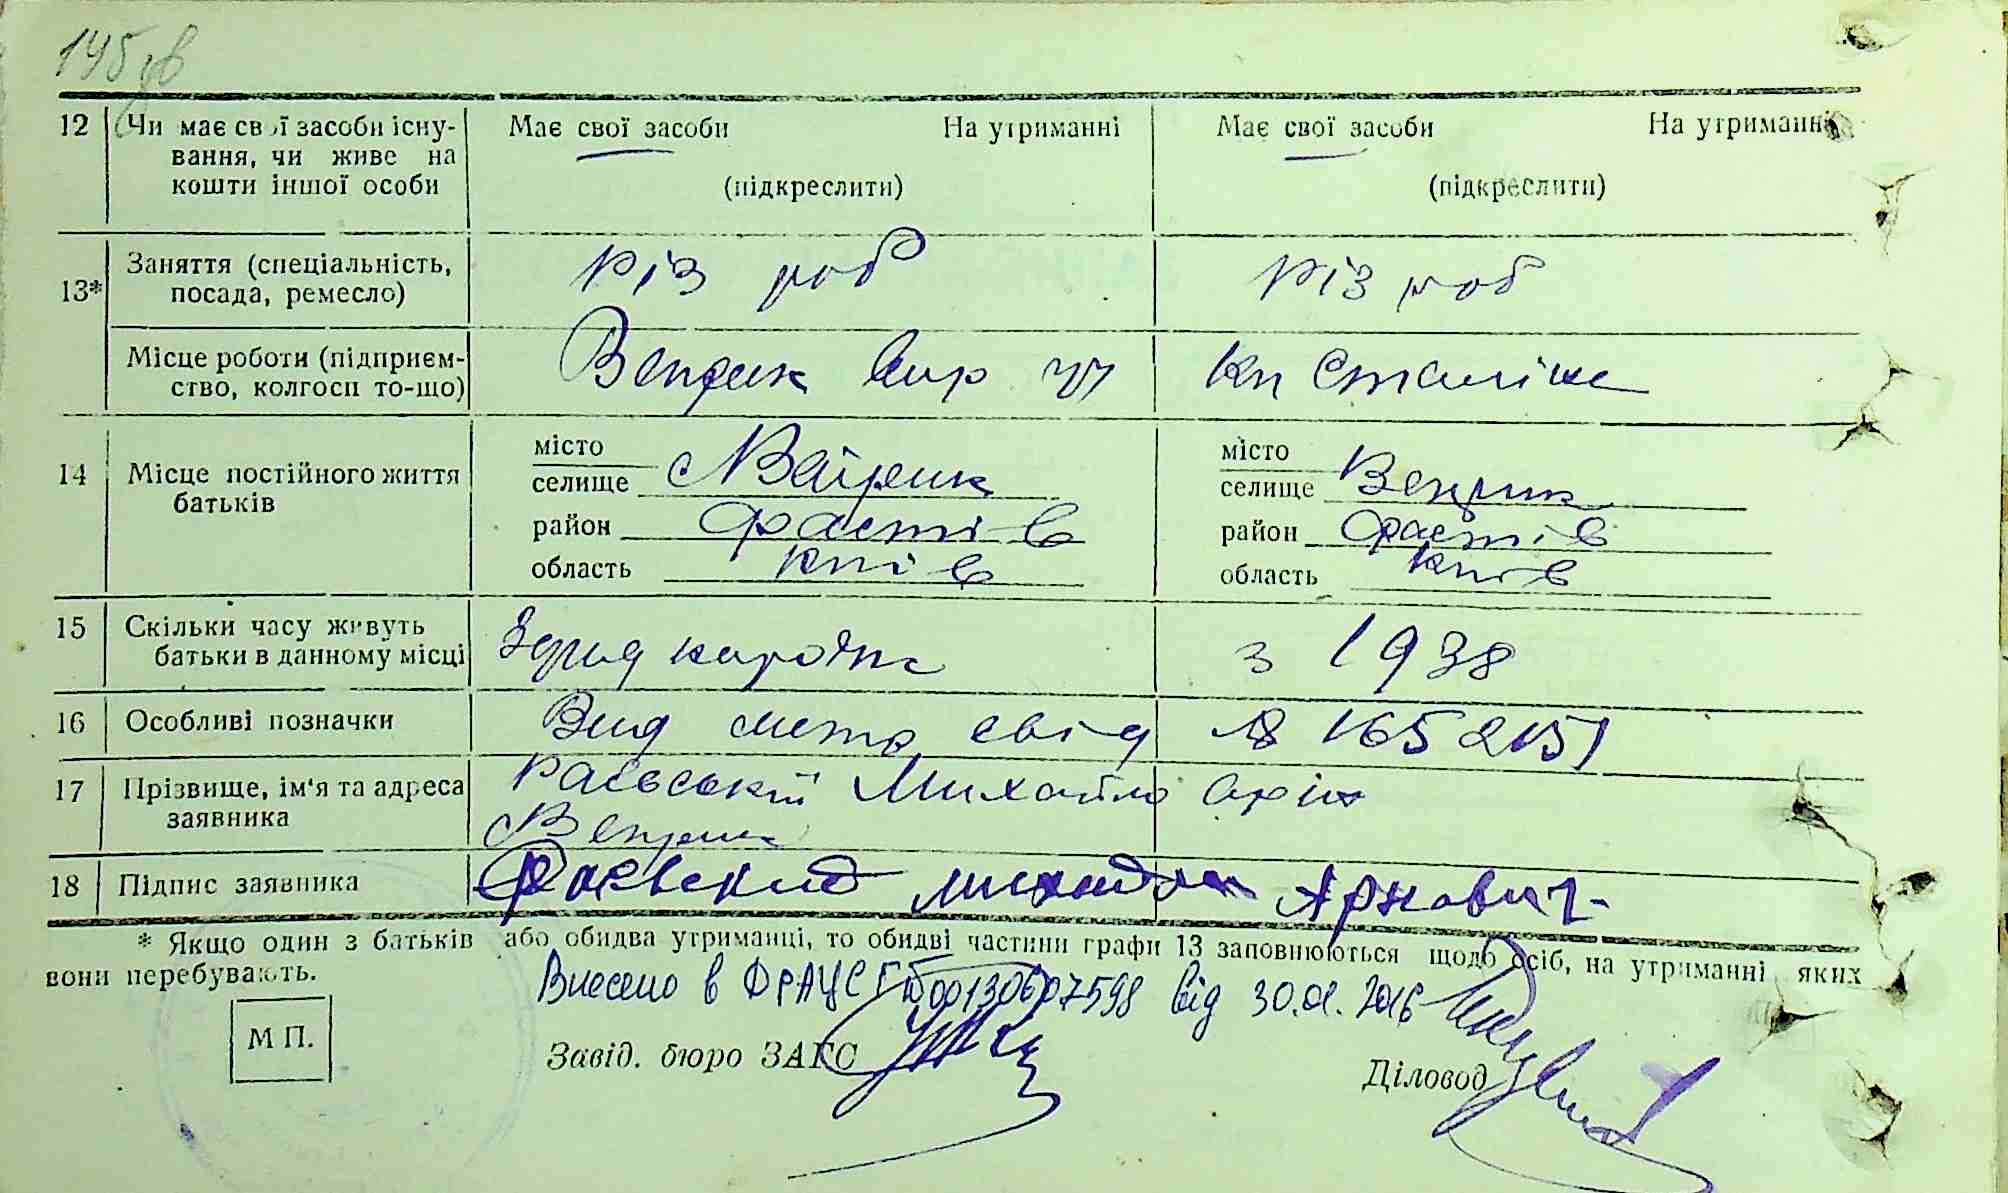 145 зв
12 Чи має свої засоби існування, чи живе на кошти іншої особи
Має свої засоби На утриманні
(підкреслити)
Має свої засоби На утриманні
(підкреслити)
13* Заняття (спеціальність, посада, ремесло)
різ роб
різ роб
Місце роботи (підприємство, колгосп то-що)
Веприк
Сталіна
14 Місце постійного життя батьків
місто
селище Веприк
район Фастів
область Київ
місто
селище Веприк
район Фастів
область Київ
15 Скільки часу живуть батьки в данному місці
з 1938
16 Особливі позначки
Вид метр свід № 165215
17 Прізвище, ім'я та адреса заявника
Раєвський Михайло
с Веприк
18 Підпис заявника
Раєвский
* Якщо один з батьків або обидва утриманці, то обидві частини графи 13 заповнюються щодо осіб, на утриманні яких
вони перебувають.
Внесено в ДРАЦСГ 00130607598 від 30.01.2016
М П.
Завід. бюро ЗАГС
Діловод